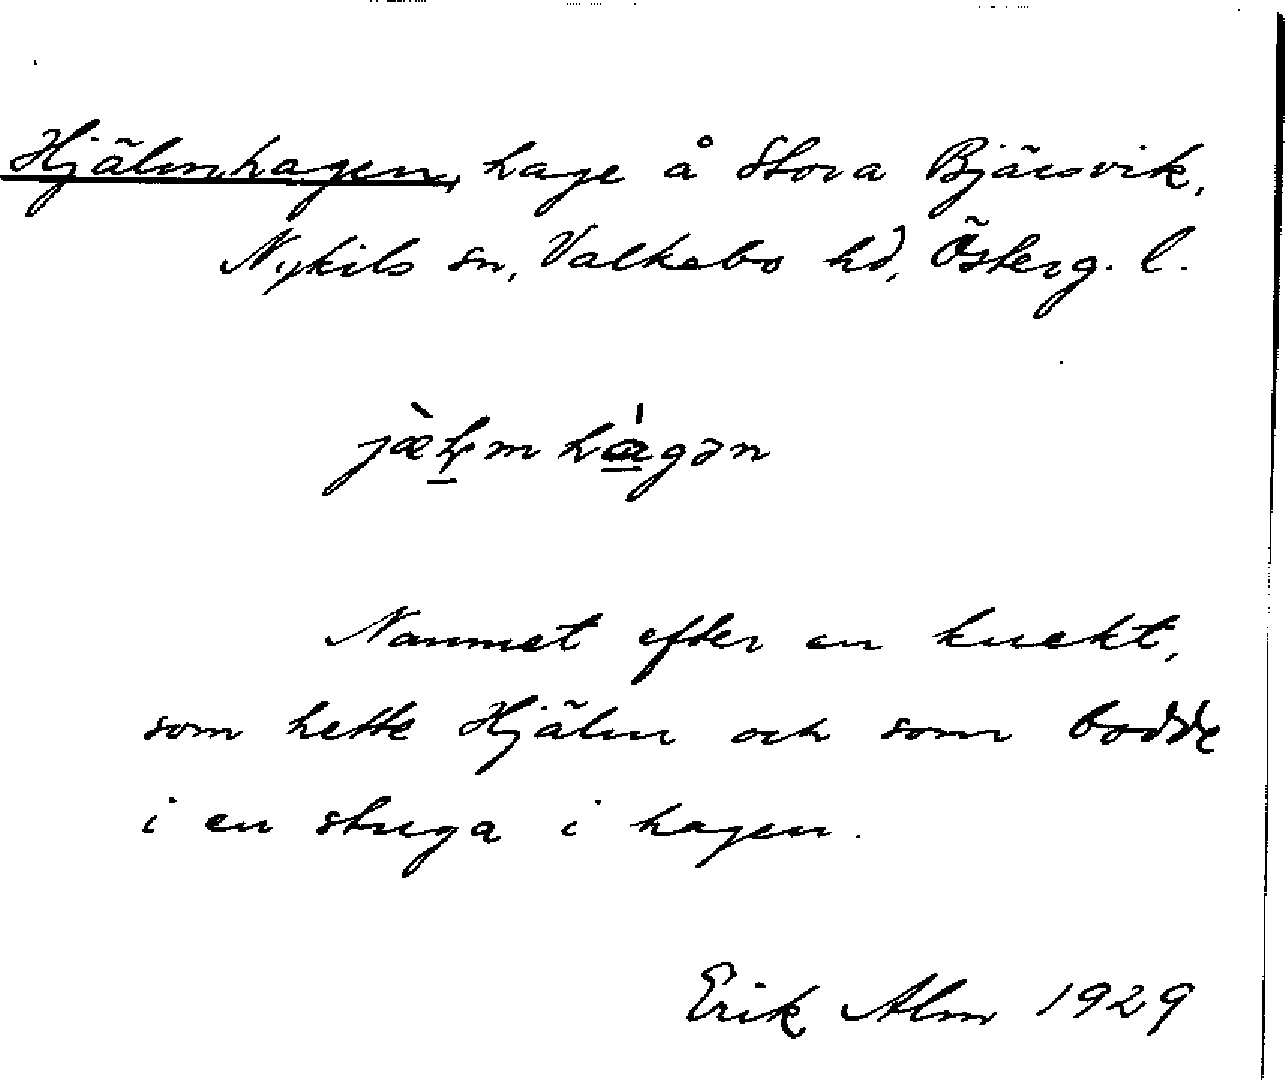 Hjälmhagen, hage å Stora Bjärsvik,
Nykils sn, Valkebo hd, Österg. l.
Namnet efter en knekt,
som hette Hjälm och som bodde
i en stuga i hagen.
Erik Alm 1929